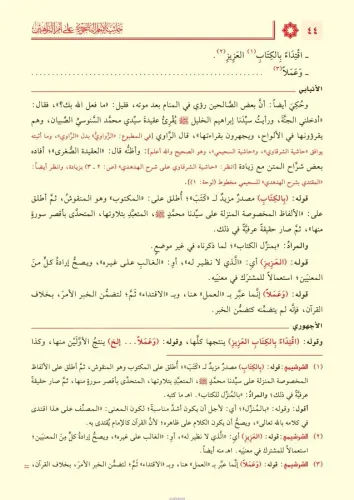 ٤٤
ـ اقْتِدَاءً بِالكِتَابِ(١) العَزِيزِ(٢).
ـ وَعَمَلاً(٣)
الأنبابي
وحُكِيَ أيضاً: أنَّ بعض الصَّالحين رؤي في المنام بعد موته، فقيل: «ما فعل الله بك؟»، فقال:
«أدخلني الجنَّة، ورأيتُ سيِّدَنا إبراهيم الخليل ﷺ يُقرِئُ عقيدةَ سيِّدي محمَّدٍ السَّنوسيِّ الصِّبيان، وهم
يقرؤونها في الألواح، ويجهرون بقراءتها»، قال الرَّاوي (في المطبوع: «الرَّوايُّ» بدل «الرَّاوي»، وما أثبته
يوافق «حاشية الشرقاوي»، و«حاشية السحيمي»، وهو الصحيح والله أعلم): وأظنُّه قال: «العقيدة الصُّغرى»؛ أفاده
بعض شُرَّاح المتن مع زيادة (انظر: «حاشية الشرقاوي على شرح الهدهدي» (ص: ٢ ـ ٣) بزيادة، وانظر أيضاً:
«المقتدي بشرح الهدهدي» للسحيمي مخطوط (لوحة: ١)).
قوله: (بِالكِتَابِ) مصدرٌ مزيدٌ لـ «كَتَبَ»؛ أُطلق على: «المكتوب» وهو المنقوش، ثمَّ أُطلق
على: «الألفاظ المخصوصة المنزلة على سيِّدنا محمَّدٍ ﷺ، المتعبَّدِ بتلاوتها، المتحدَّى بأقصر سورةٍ
منها»، ثمَّ صار حقيقةً عرفيَّةً في ذلك.
والمراد: «بمنزَّل الكتاب»؛ لما ذكرناه في غير موضعٍ.
قوله: (العَزِيزِ) أي: «الَّذي لا نظير له»، أو: «الغالب على غيره»، ويصحُّ إرادةُ كلٍّ منَ
المعنيَين؛ استعمالاً للمشترَك في معنيَيه.
قوله: (وَعَمَلاً) إنَّما عبَّر بـ «العمل» هنا، وبـ «الاقتداء» ثَمَّ؛ لتضمُّن الخبر الأمرَ، بخلاف
القرآن، فإنَّه لم يتضمَّنه كتضمُّن الخبر.
الأجهوري
وقوله: (اقْتِدَاءً بِالكِتَابِ العَزِيزِ) ينتجها كلَّها، وقوله: (وَعَمَلاً... إلخ) ينتجُ الأوَّلَيْن منها، وكذا
(١) الشرشيمي: قوله: (بِالكِتَابِ) مصدرٌ مزيد لـ «كَتَبَ»؛ أُطلق على المكتوب وهو المنقوش، ثم أُطلق على الألفاظ
المخصوصة المنزلة على سيدنا محمد ﷺ، المتعبَّد بتلاوتها، المتحدَّى بأقصر سورةٍ منها، ثمَّ صار حقيقةً
عرفيَّةً في ذلك؛ والمراد: «بالمُنَزَّل بالكتاب». اهـ ما كتبه.
أقول: وقوله: «بالمُنَزَّل»؛ أي: لأجل أن يكون أشدَّ مناسبةً؛ لكون المعنى: «المصنِّف على هذا اقتدى
في كلامه بالله تعالى»، ويصحُّ أن يكون الكلام على ظاهره؛ لأنَّ القرآن كالإمام يُقتدى به.
(٢) الشرشيمي: قوله: (العَزِيزِ) أي: «الَّذي لا نظير له»، أو: «الغالب على غيره»، ويصحُّ إرادةُ كلٍّ منَ المعنيَين؛
استعمالاً للمشترك في معنيَيه. اهـ منه أيضاً.
(٣) الشرشيمي: قوله: (وَعَمَلاً) إنَّما عبَّر بـ «العمل» هنا، وبـ «الاقتداء» ثَمَّ؛ لتضمُّن الخبر الأمرَ، بخلاف القرآن،